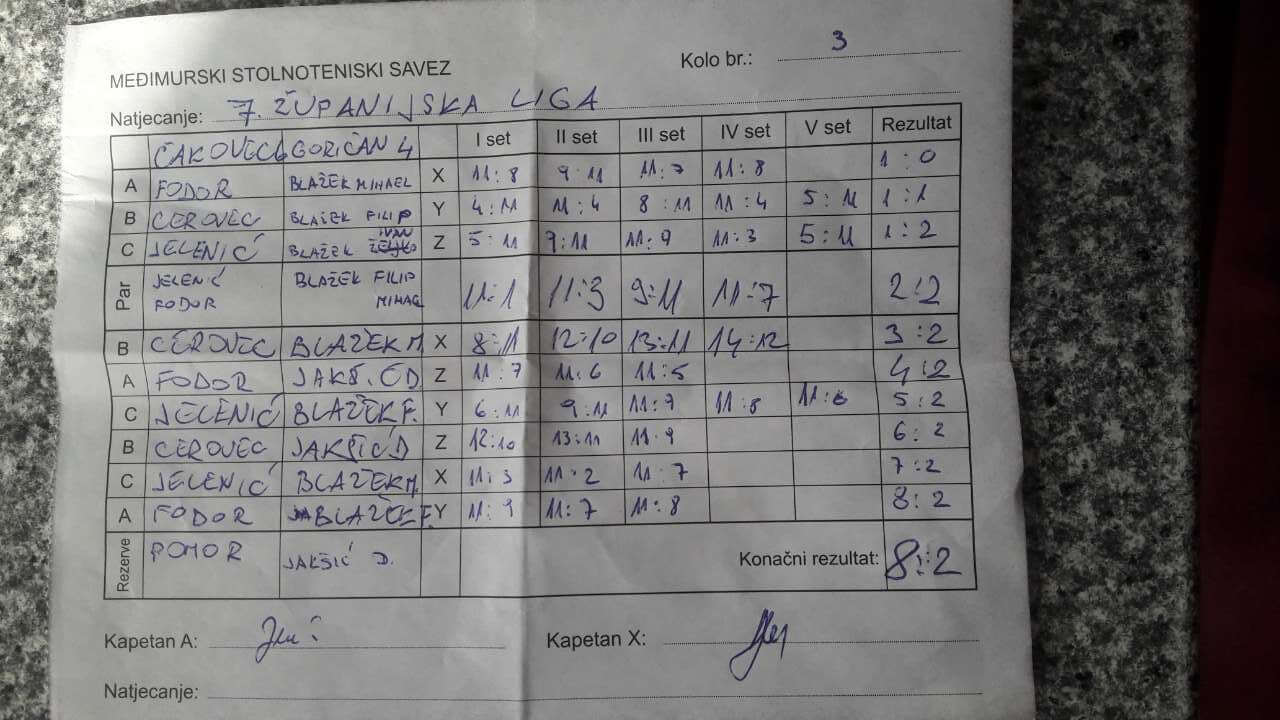 MEĐIMURSKI STOLNOTENISKI SAVEZ
Kolo br.: 3
Natjecanje: 7. ŽUPANIJSKA LIGA
ČAKOVEC 6 GORIČAN 4 I set II set III set IV set V set Rezultat
A FODOR BLAŽEK MIHAEL X 11:8 9:11 11:7 11:8 1:0
B CEROVEC BLAŽEK FILIP Y 4:11 11:4 8:11 11:4 5:11 1:1
C JELENIĆ BLAŽEK IVAN Z 5:11 9:11 11:9 11:3 5:11 1:2
Par JELENIĆ BLAŽEK FILIP 11:1 11:3 9:11 11:7 2:2
FODOR MIHAEL
B CEROVEC BLAŽEK M. X 8:11 12:10 13:11 14:12 3:2
A FODOR JAKŠ.Ć D. Z 11:7 11:6 11:5 4:2
C JELENIĆ BLAŽEK F. Y 6:11 9:11 11:9 11:8 11:6 5:2
B CEROVEC JAKŠIĆ D Z 12:10 13:11 11:9 6:2
C JELENIĆ BLAŽEK M. X 11:3 11:2 11:7 7:2
A FODOR BLAŽEK F. Y 11:9 11:7 11:8 8:2
Rezerve POMOR JAKŠIĆ D. Konačni rezultat: 8:2
Kapetan A: Kapetan X:
Natjecanje: